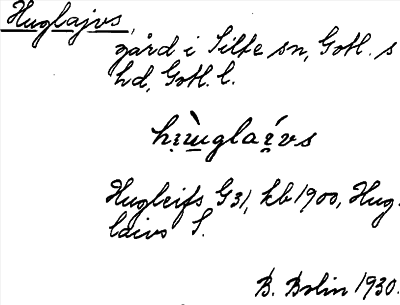 Huglajvs,
gård i Silte sn, Gotl. s
hd, Gotl. l.
Hugleifs G31, kb 1900, Hug-
laivs S.
B. Bolin 1930.